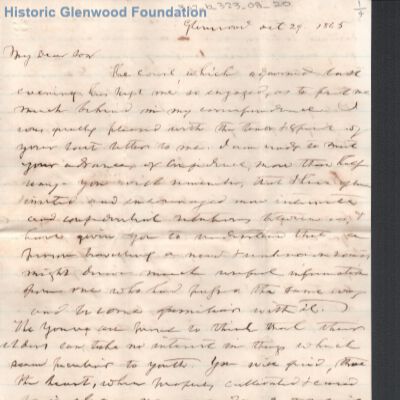 Historic Glenwood Foundation
Glenwood Oct 29 1865
My Dear Son
The Court, which adjourned last
evening has kept me so engaged, as to put me
much behind in my correspondence. I
was greatly pleased with the tone & spirit of
your last letter to me. I am ready to meet
your advances of Confidence, more than half
way. You will remember, that I have often
invited and encouraged more intimate
and confidential relations between us, &
have given you to understand that a
person traveling a new & unknown road
might derive much useful information
from one who had passed the same way
and become familiar with it.
The Young are prone to think that their
elders can take no interest in things which
seem peculiar to youth. You will find, that
the heart, when properly cultivated & cared